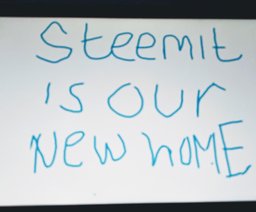 Steemit
is our
New hoME